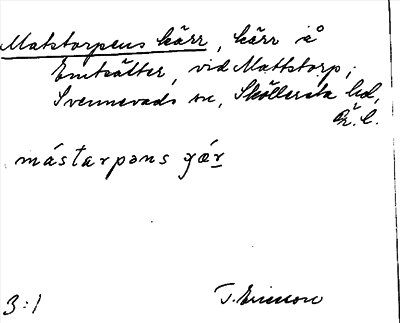 Matstorpens kärr, kärr i å
Emtsätter, vid Mattstorp;
Svennevads sn, Sköllersta hd,
Ör. l.
mástarpəns ɡǽr
3:1
T. Ericsson